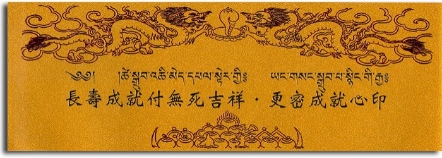 ༄༅། །ཚེ་སྒྲུབ་འཆི་མེད་དཔལ་སྟེར་གྱི༔ ཡང་གསང་སྒྲུབ་པ་སྙིང་གི་རྒྱ༔
長壽成就付無死吉祥·更密成就心印